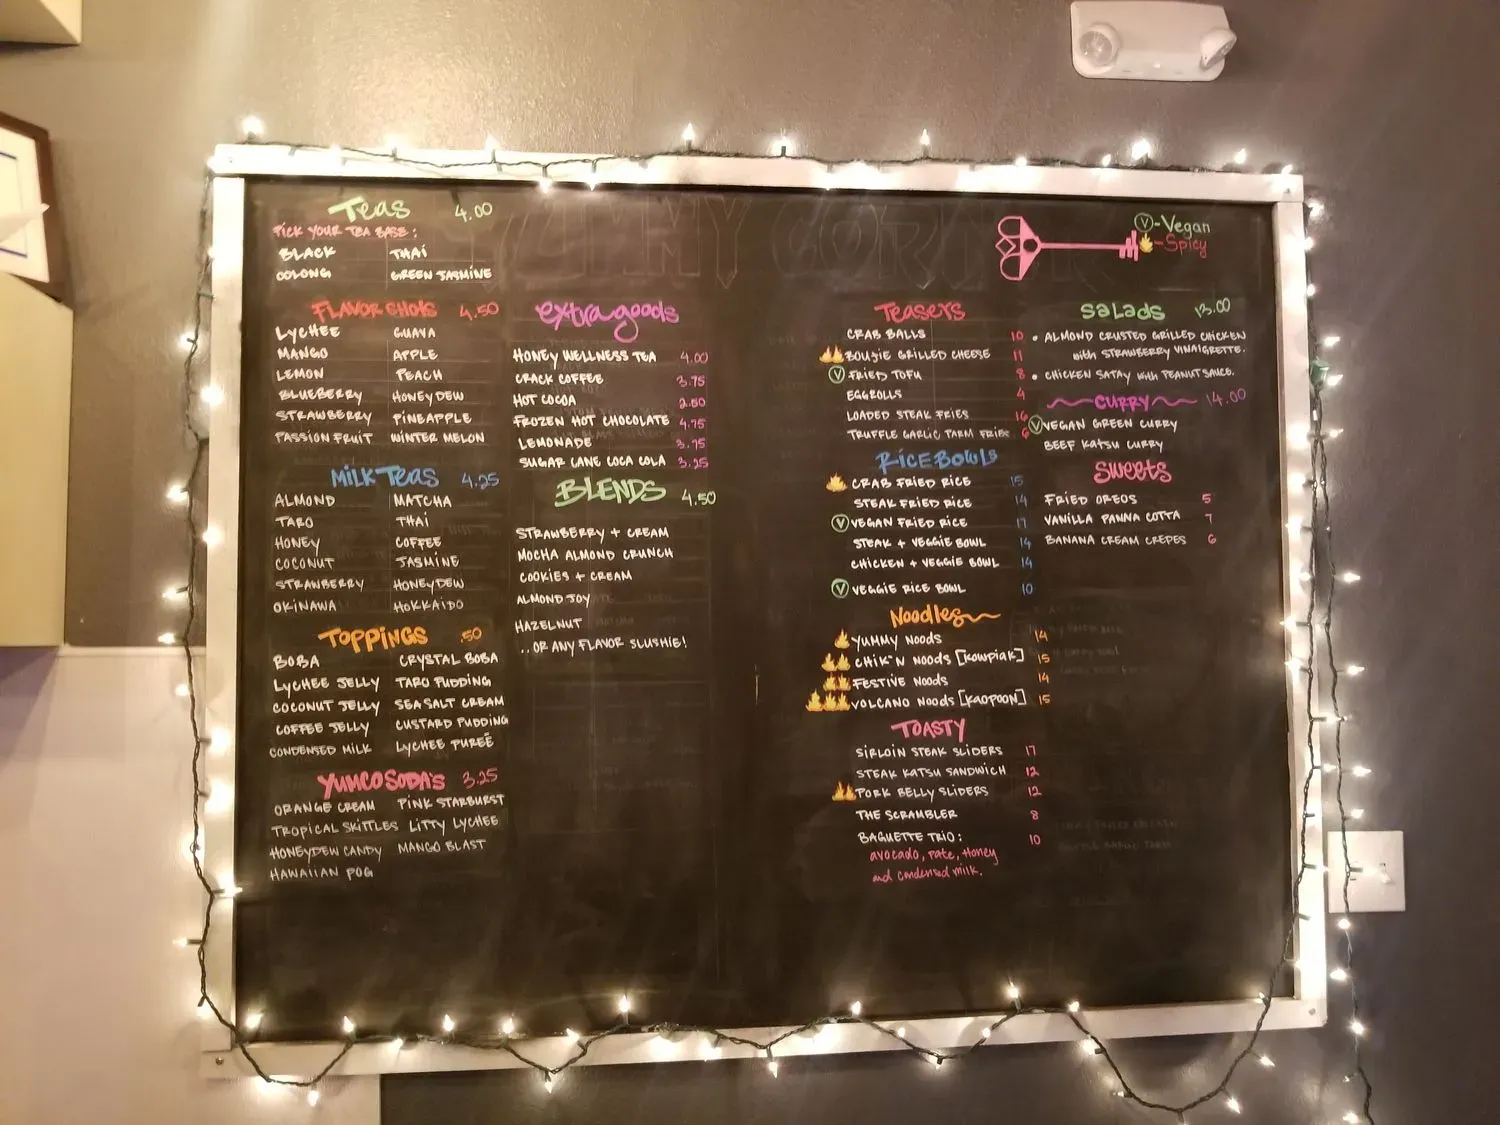 Teas 4.00
PICK YOUR TEA BASE:
BLACK THAI
OOLONG GREEN JASMINE
FLAVOR SHOTS 4.50
LYCHEE GUAVA
MANGO APPLE
LEMON PEACH
BLUEBERRY HONEYDEW
STRAWBERRY PINEAPPLE
PASSION FRUIT WINTER MELON
MILK TEAS 4.25
ALMOND MATCHA
TARO THAI
HONEY COFFEE
COCONUT JASMINE
STRAWBERRY HONEYDEW
OKINAWA HOKKAIDO
TOPPINGS .50
BOBA CRYSTAL BOBA
LYCHEE JELLY TARO PUDDING
COCONUT JELLY SEA SALT CREAM
COFFEE JELLY CUSTARD PUDDING
CONDENSED MILK LYCHEE PUREÉ
YUMCO SODA'S 3.25
ORANGE CREAM PINK STARBURST
TROPICAL SKITTLES LITTY LYCHEE
HONEYDEW CANDY MANGO BLAST
HAWAIIAN POG
extra goods
HONEY WELLNESS TEA 4.00
CRACK COFFEE 3.75
HOT COCOA 2.50
FROZEN HOT CHOCOLATE 4.75
LEMONADE 3.75
SUGAR CANE COCA COLA 3.25
BLENDS 4.50
STRAWBERRY + CREAM
MOCHA ALMOND CRUNCH
COOKIES + CREAM
ALMOND JOY
HAZELNUT
...OR ANY FLAVOR SLUSHIE!
YUMMY CORNER
V-Vegan
-Spicy
TEASERS
CRAB BALLS 10
BOUJIE GRILLED CHEESE 11
V FRIED TOFU 8
EGGROLLS 4
LOADED STEAK FRIES 16
TRUFFLE GARLIC PARM FRIES 6
RICE BOWLS
CRAB FRIED RICE 15
STEAK FRIED RICE 14
V VEGAN FRIED RICE
STEAK + VEGGIE BOWL 14
CHICKEN + VEGGIE BOWL 14
V VEGGIE RICE BOWL 10
Noodles
YUMMY NOODS 14
CHIK'N NOODS [KOWPIAK] 15
FESTIVE NOODS 14
VOLCANO NOODS [KAOPOON] 15
TOASTY
SIRLOIN STEAK SLIDERS 17
STEAK KATSU SANDWICH 12
PORK BELLY SLIDERS 12
THE SCRAMBLER 8
BAGUETTE TRIO: 10
avocado, pate, Honey
and condensed milk.
SALADS 13.00
• ALMOND CRUSTED GRILLED CHICKEN
with STRAWBERRY VINAIGRETTE.
• CHICKEN SATAY with PEANUT SAUCE.
CURRY 14.00
V VEGAN GREEN CURRY
BEEF KATSU CURRY
SWEETS
FRIED OREOS 5
VANILLA PANNA COTTA 7
BANANA CREAM CREPES 6